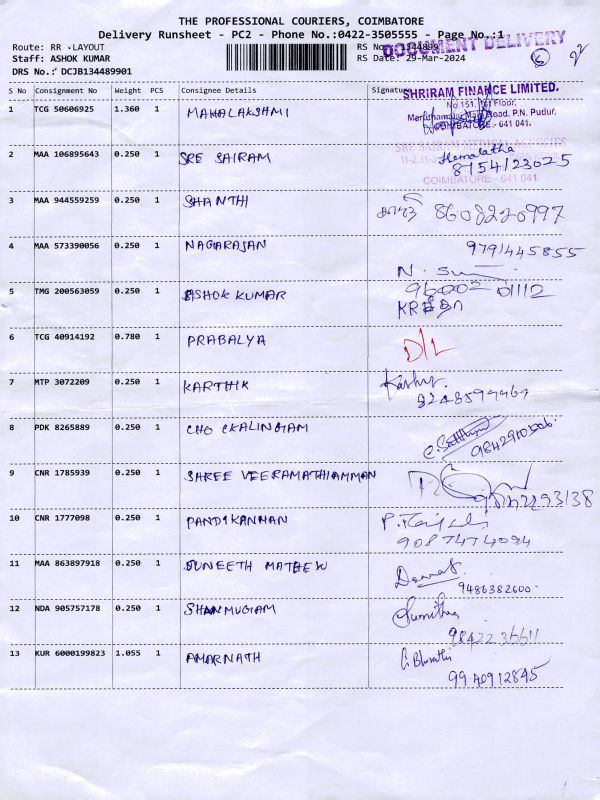 THE PROFESSIONAL COURIERS, COIMBATORE
Delivery Runsheet - PC2 - Phone No.:0422-3505555 - Page No.:1
Route: RR LAYOUT
RS No.: 1344899
DOCUMENT DELIVERY
Staff: ASHOK KUMAR
RS Date: 29-Mar-2024
DRS No.: DCJB134489901
S No Consignment No Weight PCS Consignee Details Signature
SHRIRAM FINANCE LIMITED.
No 151, 1st Floor,
Road, P.N. Pudur,
COIMBATORE - 641 041.
1 TCG 50606925 1.360 1 MAHALAKSHMI
SRE SAIRAM
COIMBATORE - 641 041.
2 MAA 106895643 0.250 1 SRE SAIRAM Hemalatha
8754123025
3 MAA 944559259 0.250 1 SHANTHI 8608220997
4 MAA 573390056 0.250 1 NAGARAJAN 9791445855
5 TMG 200563059 0.250 1 ASHOK KUMAR 01112
6 TCG 40914192 0.780 1 PRABALYA D/L
7 MTP 3072209 0.250 1 KARTHIK
8 PDK 8265889 0.250 1 CHO CKALINGAM
9 CNR 1785939 0.250 1 SHREE VEERAMATHIAMMAN
10 CNR 1777098 0.250 1 PANDIKANNAN
9087474094
11 MAA 863897918 0.250 1 SUNEETH MATHEW
9486382600
12 NDA 905757178 0.250 1 SHANMUGAM Sumithra
98422 36611
13 KUR 6000199823 1.055 1 AMARNATH G. Bharathi
9940912845